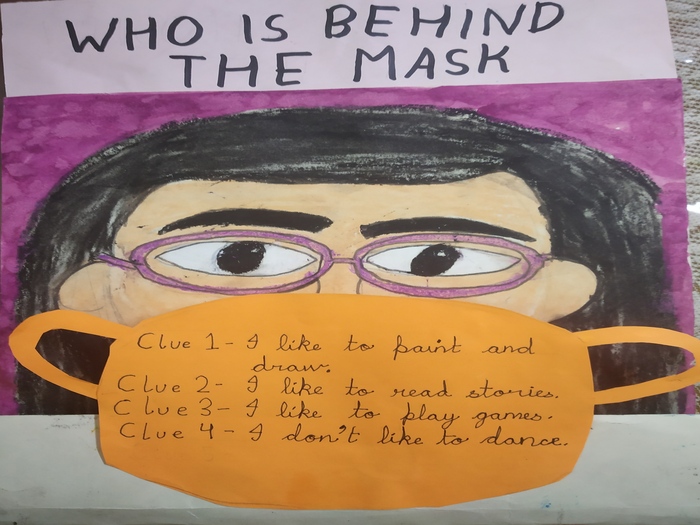 WHO IS BEHIND
THE MASK
Clue 1- I like to paint and
draw.
Clue 2- I like to read stories.
Clue 3- I like to play games.
Clue 4- I don't like to dance.